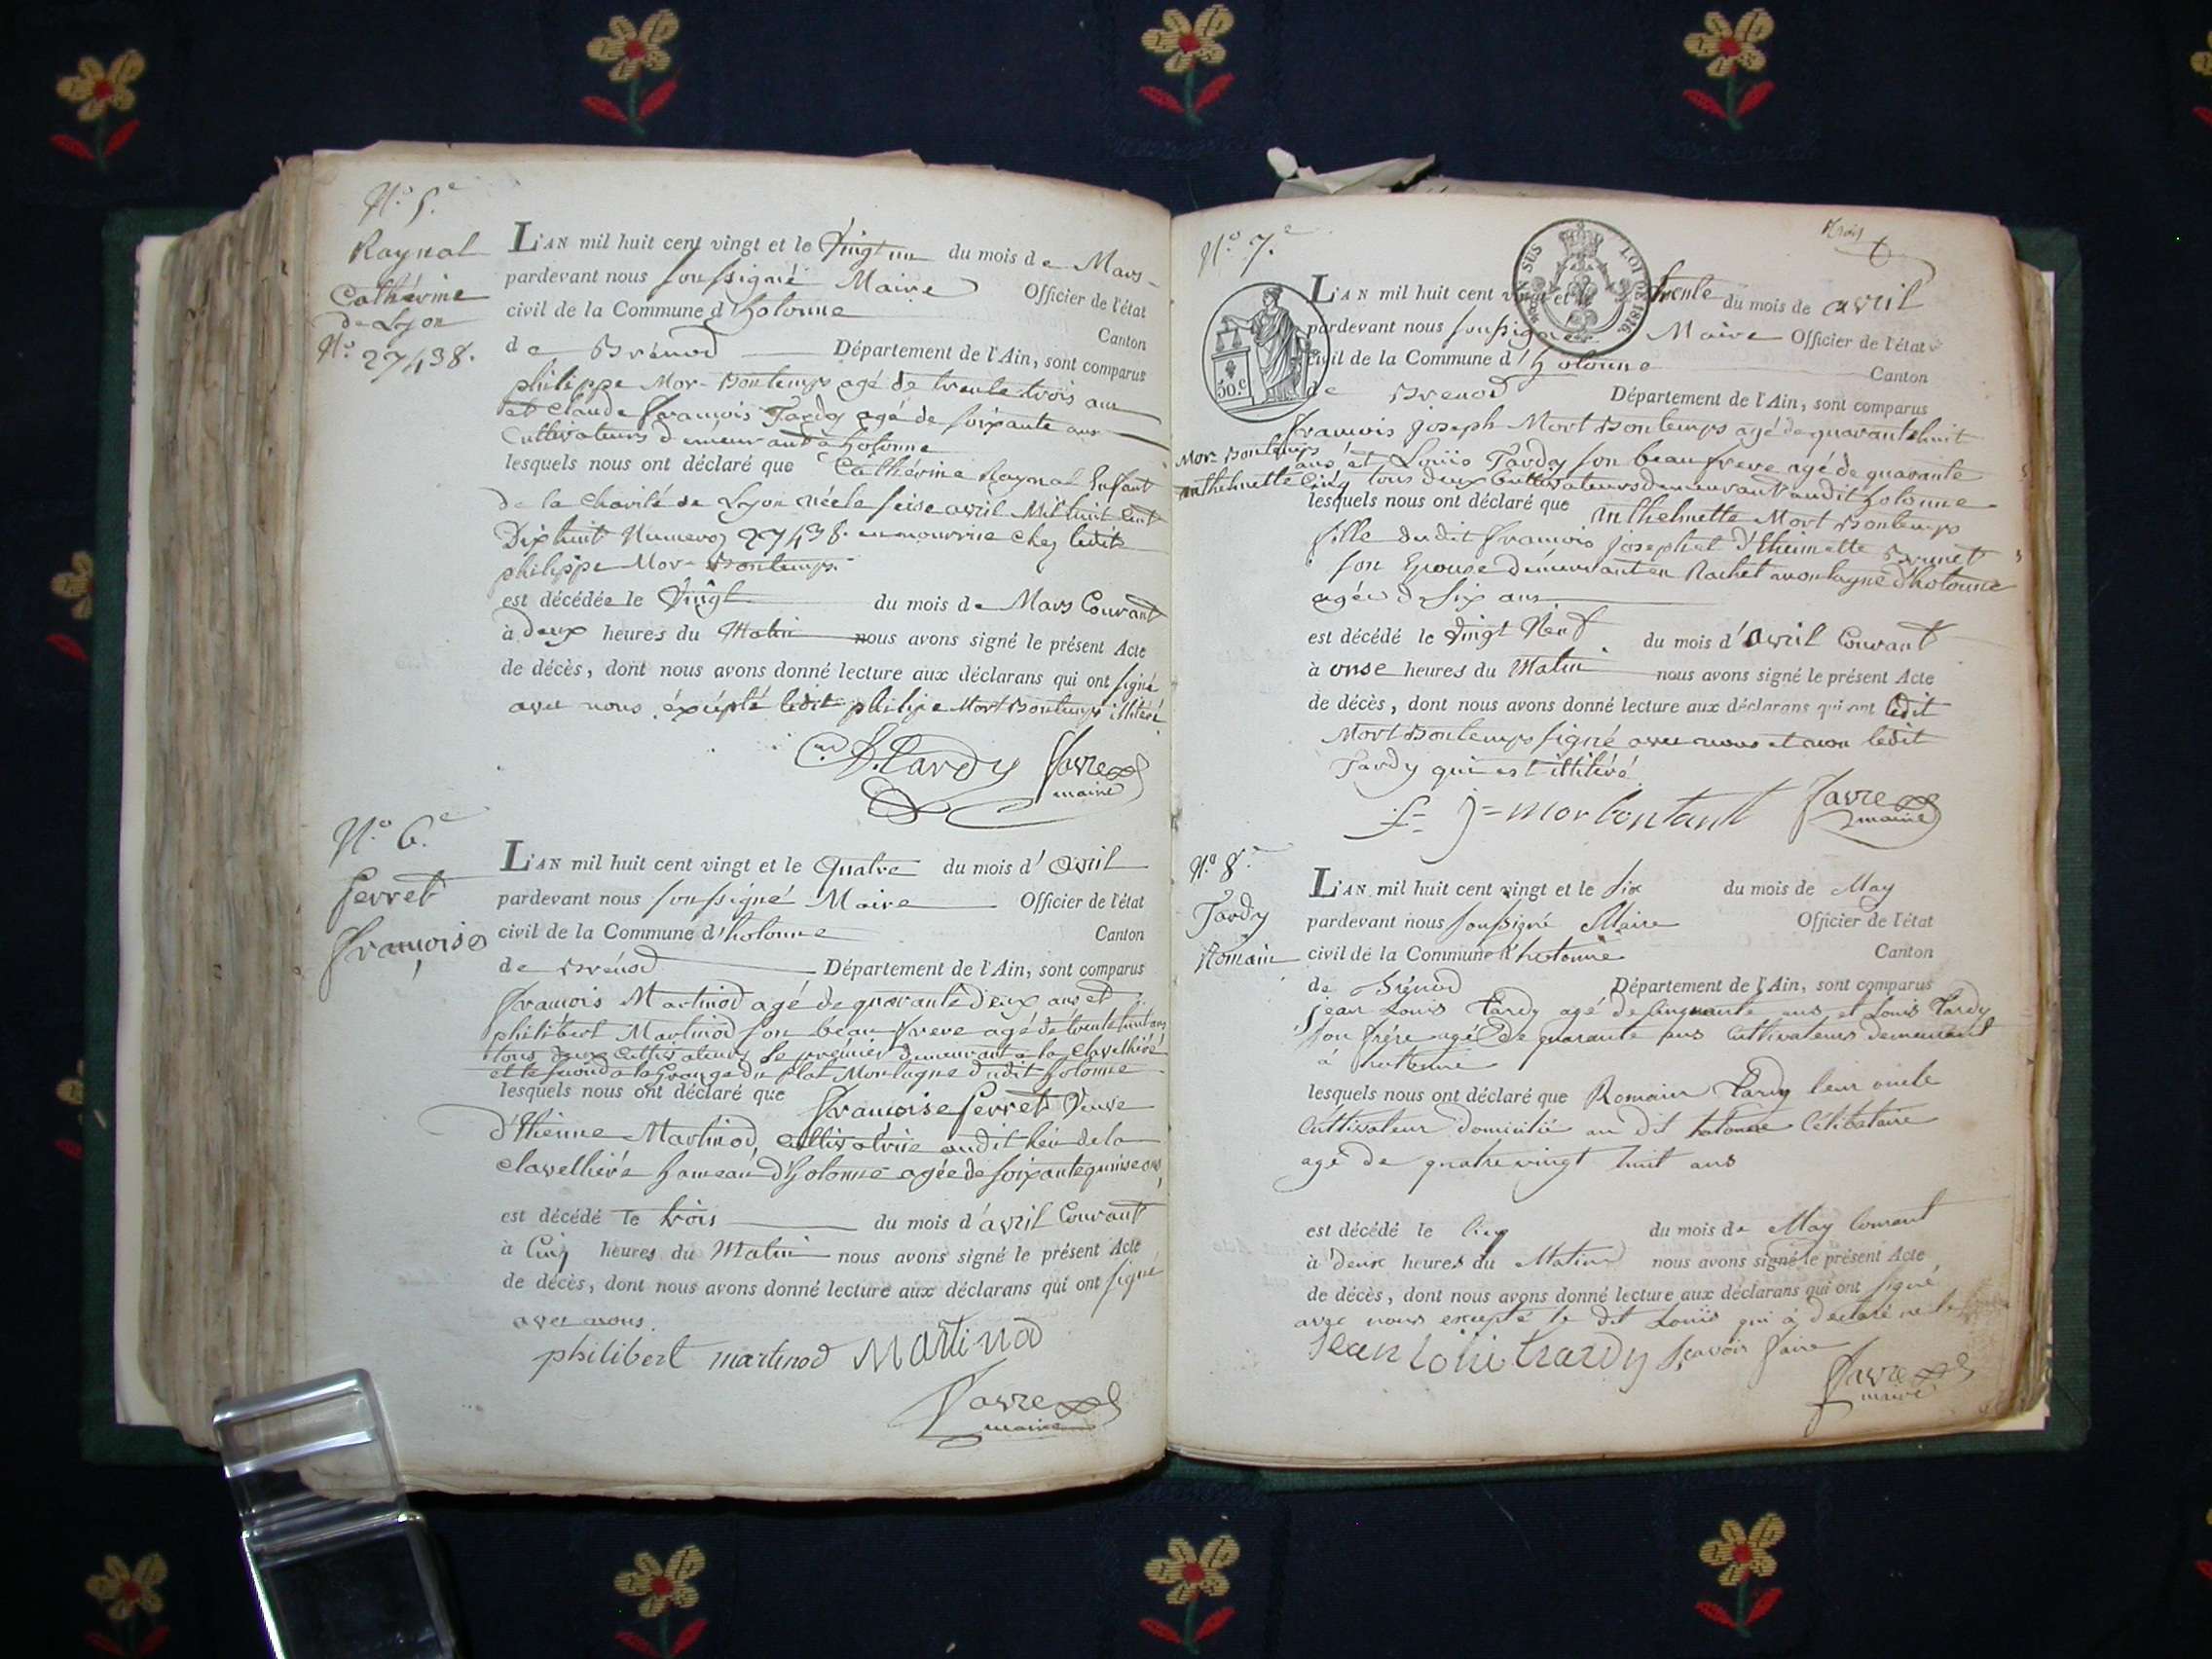 N.o 5.e
Raynal
Catherine
de Lyon
N.o 27438.
L'AN mil huit cent vingt et le Vingt un du mois de Mars
pardevant nous soussigné Maire Officier de l'état
civil de la Commune d'hotonne Canton
de Brénod Département de l'Ain, sont comparus
philippe Mor-Bontemps agé de trente trois ans
et Claude françois Tardy agé de soixante ans
Cultivateurs demeurant a hotonne
lesquels nous ont déclaré que Cathérine Raynal Enfant
de la Charité de Lyon née le seise avril Mil huit Cent
Dix huit Numero 27438. en nourrice chez ledit
philippe Mor-Bontemps.
est décédée le Vingt du mois de Mars Courant
à deux heures du Matin nous avons signé le présent Acte
de décès, dont nous avons donné lecture aux déclarans qui ont signé
avec nous éxcépté ledit philipe Mort Bontemps illitéré
C. f. tardy favre
maire
N.o 6.e
Perret
françoise
L'AN mil huit cent vingt et le Quatre du mois d'avril
pardevant nous soussigné Maire Officier de l'état
civil de la Commune d'hotonne Canton
de Brénod Département de l'Ain, sont comparus
françois Martinod agé de quarante deux ans et
philibert Martinod son beau frere agé de trente huit ans
tous deux Cultivateurs le prémier demeurant a la Clavelliére
et le second a la Grange du plat Montagne dudit hotonne
lesquels nous ont déclaré que françoise Perret Veuve
d'Etienne Martinod, Cultivatrice audit lieu de la
Clavelliére hameau d'hotonne agée de soixante quinse ans
est décédé le trois du mois d'avril Courant
à Cinq heures du Matin nous avons signé le présent Acte
de décès, dont nous avons donné lecture aux déclarans qui ont signé
avec nous.
philibert martinod Martinod
favre
maire
N.o 7.e
SUS LOI DE 1816.
50.c
L'AN mil huit cent vingt et le trente du mois de avril
pardevant nous soussigné Maire Officier de l'état
civil de la Commune d'hotonne Canton
de Brenod Département de l'Ain, sont comparus
françois joseph Mort Bontemps agé de quarante huit
Mor-Bontemps
anthelmette
ans et Louis Tardy son beau frere agé de quarante
Cinq tous deux Cultivateurs demeurant audit hotonne
lesquels nous ont déclaré que anthelmette Mort Bontemps
fille dudit françois joseph et d'Etiennette Brunet
son Epouse demeurant en Rachet montagne d'hotonne
agée de six ans
est décédé le Vingt Neuf du mois d'avril Courant
à onse heures du Matin nous avons signé le présent Acte
de décès, dont nous avons donné lecture aux déclarans qui ont ledit
Mort Bontemps signé avec nous et non ledit
Tardy qui est illitéré
f = j = morbontant favre
maire
N.o 8.e
Tardy
Romain
L'AN mil huit cent vingt et le six du mois de May
pardevant nous soussigné Maire Officier de l'état
civil de la Commune d'hotonne Canton
de Brénod Département de l'Ain, sont comparus
jean Louis tardy agé de cinquante ans et Louis tardy
son frére agé de quarante ans Cultivateurs demeurant
á hottonne
lesquels nous ont déclaré que Romain tardy leur oncle
Cultivateur domicilié au dit hotonne Célibataire
agé de quatre vingt huit ans
est décédé le cinq du mois de May Courant
à deux heures du Matin nous avons signé le présent Acte
de décès, dont nous avons donné lecture aux déclarans qui ont signé
avec nous excepté le dit Louis qui á declaré ne le
jean loui tardy scavoir faire
favre
maire